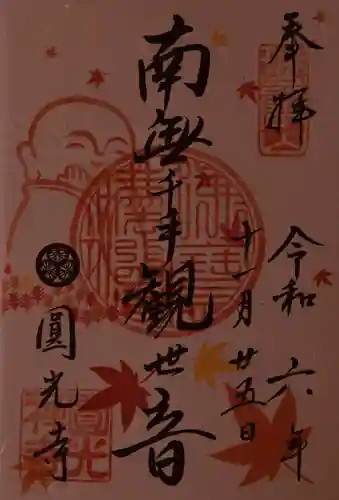 奉拝
令和六年
十一月廿五日
南無千手観世音
圓光寺